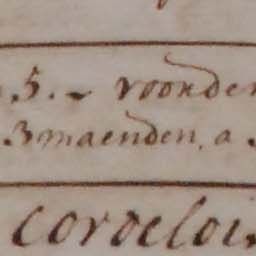 .5. - voonden
.3 maenden. a.
coroeloi